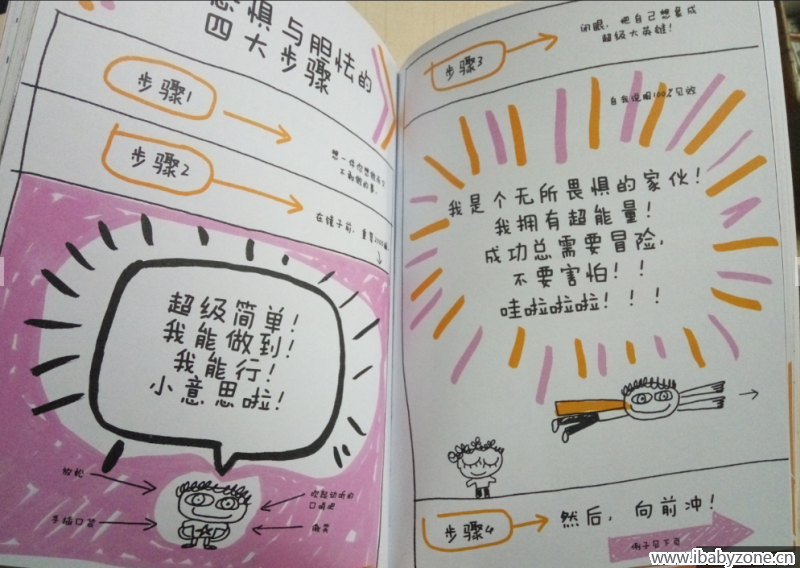 恐惧与胆怯的
四大步骤
步骤1
想一件你想做而又
不敢做的事。
步骤2
在镜子前，重复2000遍
超级简单！
我能做到！
我能行！
小意思啦！
放松
手插口袋
吹起动听的
口哨吧
微笑
步骤3
闭眼，把自己想象成
超级大英雄！
自我说服100%见效
我是个无所畏惧的家伙！
我拥有超能量！
成功总需要冒险，
不要害怕！！
哇啦啦啦！！！
步骤4
然后，向前冲！
例子见下页
www.ibabyzone.cn